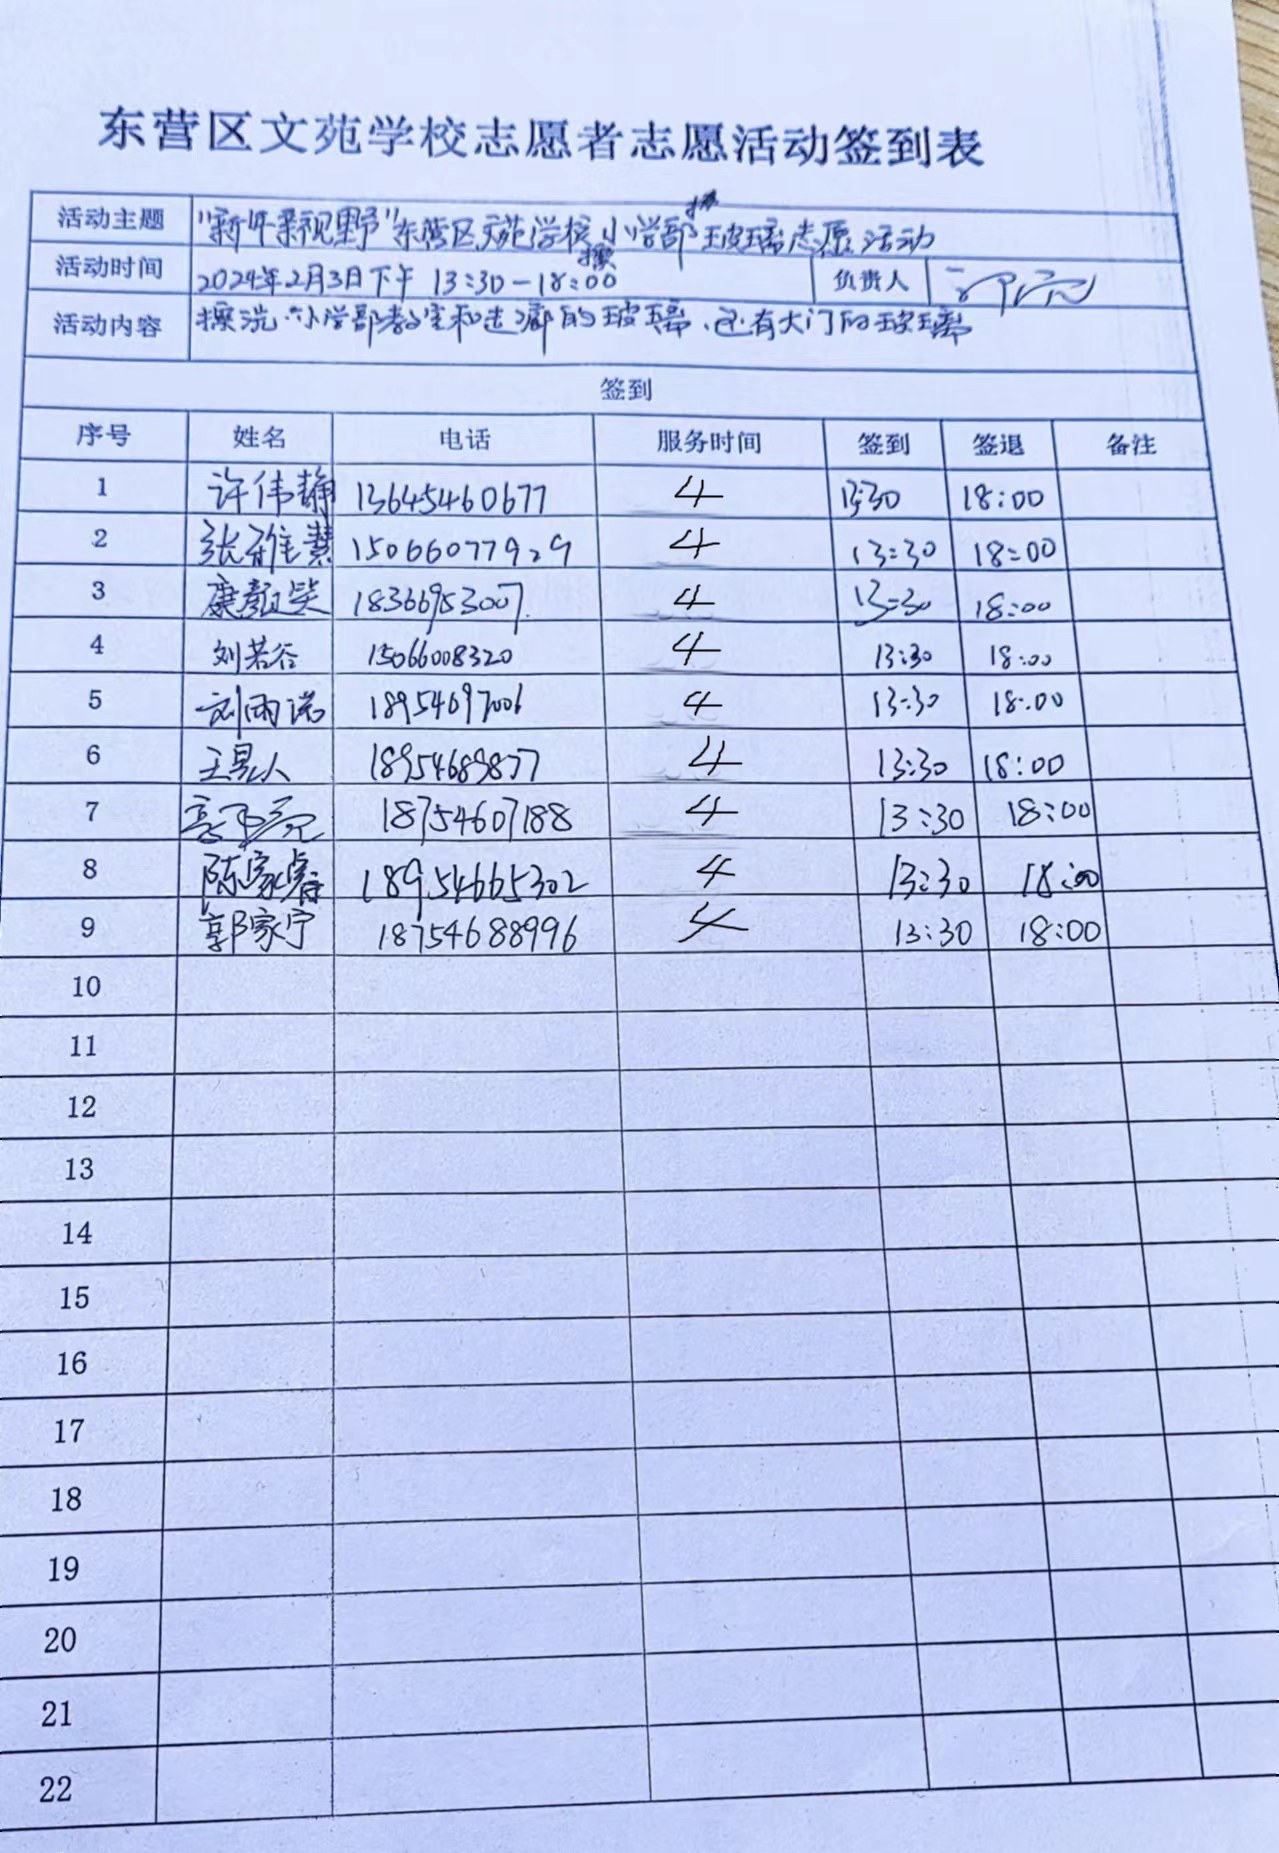 东营区文苑学校志愿者志愿活动签到表
活动主题 "新年新视野"东营区文苑学校小学部擦玻璃志愿活动
活动时间 2024年2月3日下午 13:30-18:00 负责人
活动内容 擦洗小学部教室和走廊的玻璃、还有大门的玻璃
签到
序号 姓名 电话 服务时间 签到 签退 备注
1 许伟静 13645460677 4 13:30 18:00
2 张雅慧 15066077929 4 13:30 18:00
3 4 13:30 18:00
4 刘若谷 15066008320 4 13:30 18:00
5 刘雨诺 4 13:30 18:00
6 4 13:30 18:00
7 18754607188 4 13:30 18:00
8 陈家睿 18954665302 4 13:30 18:00
9 郭家宁 18754688996 4 13:30 18:00
10
11
12
13
14
15
16
17
18
19
20
21
22